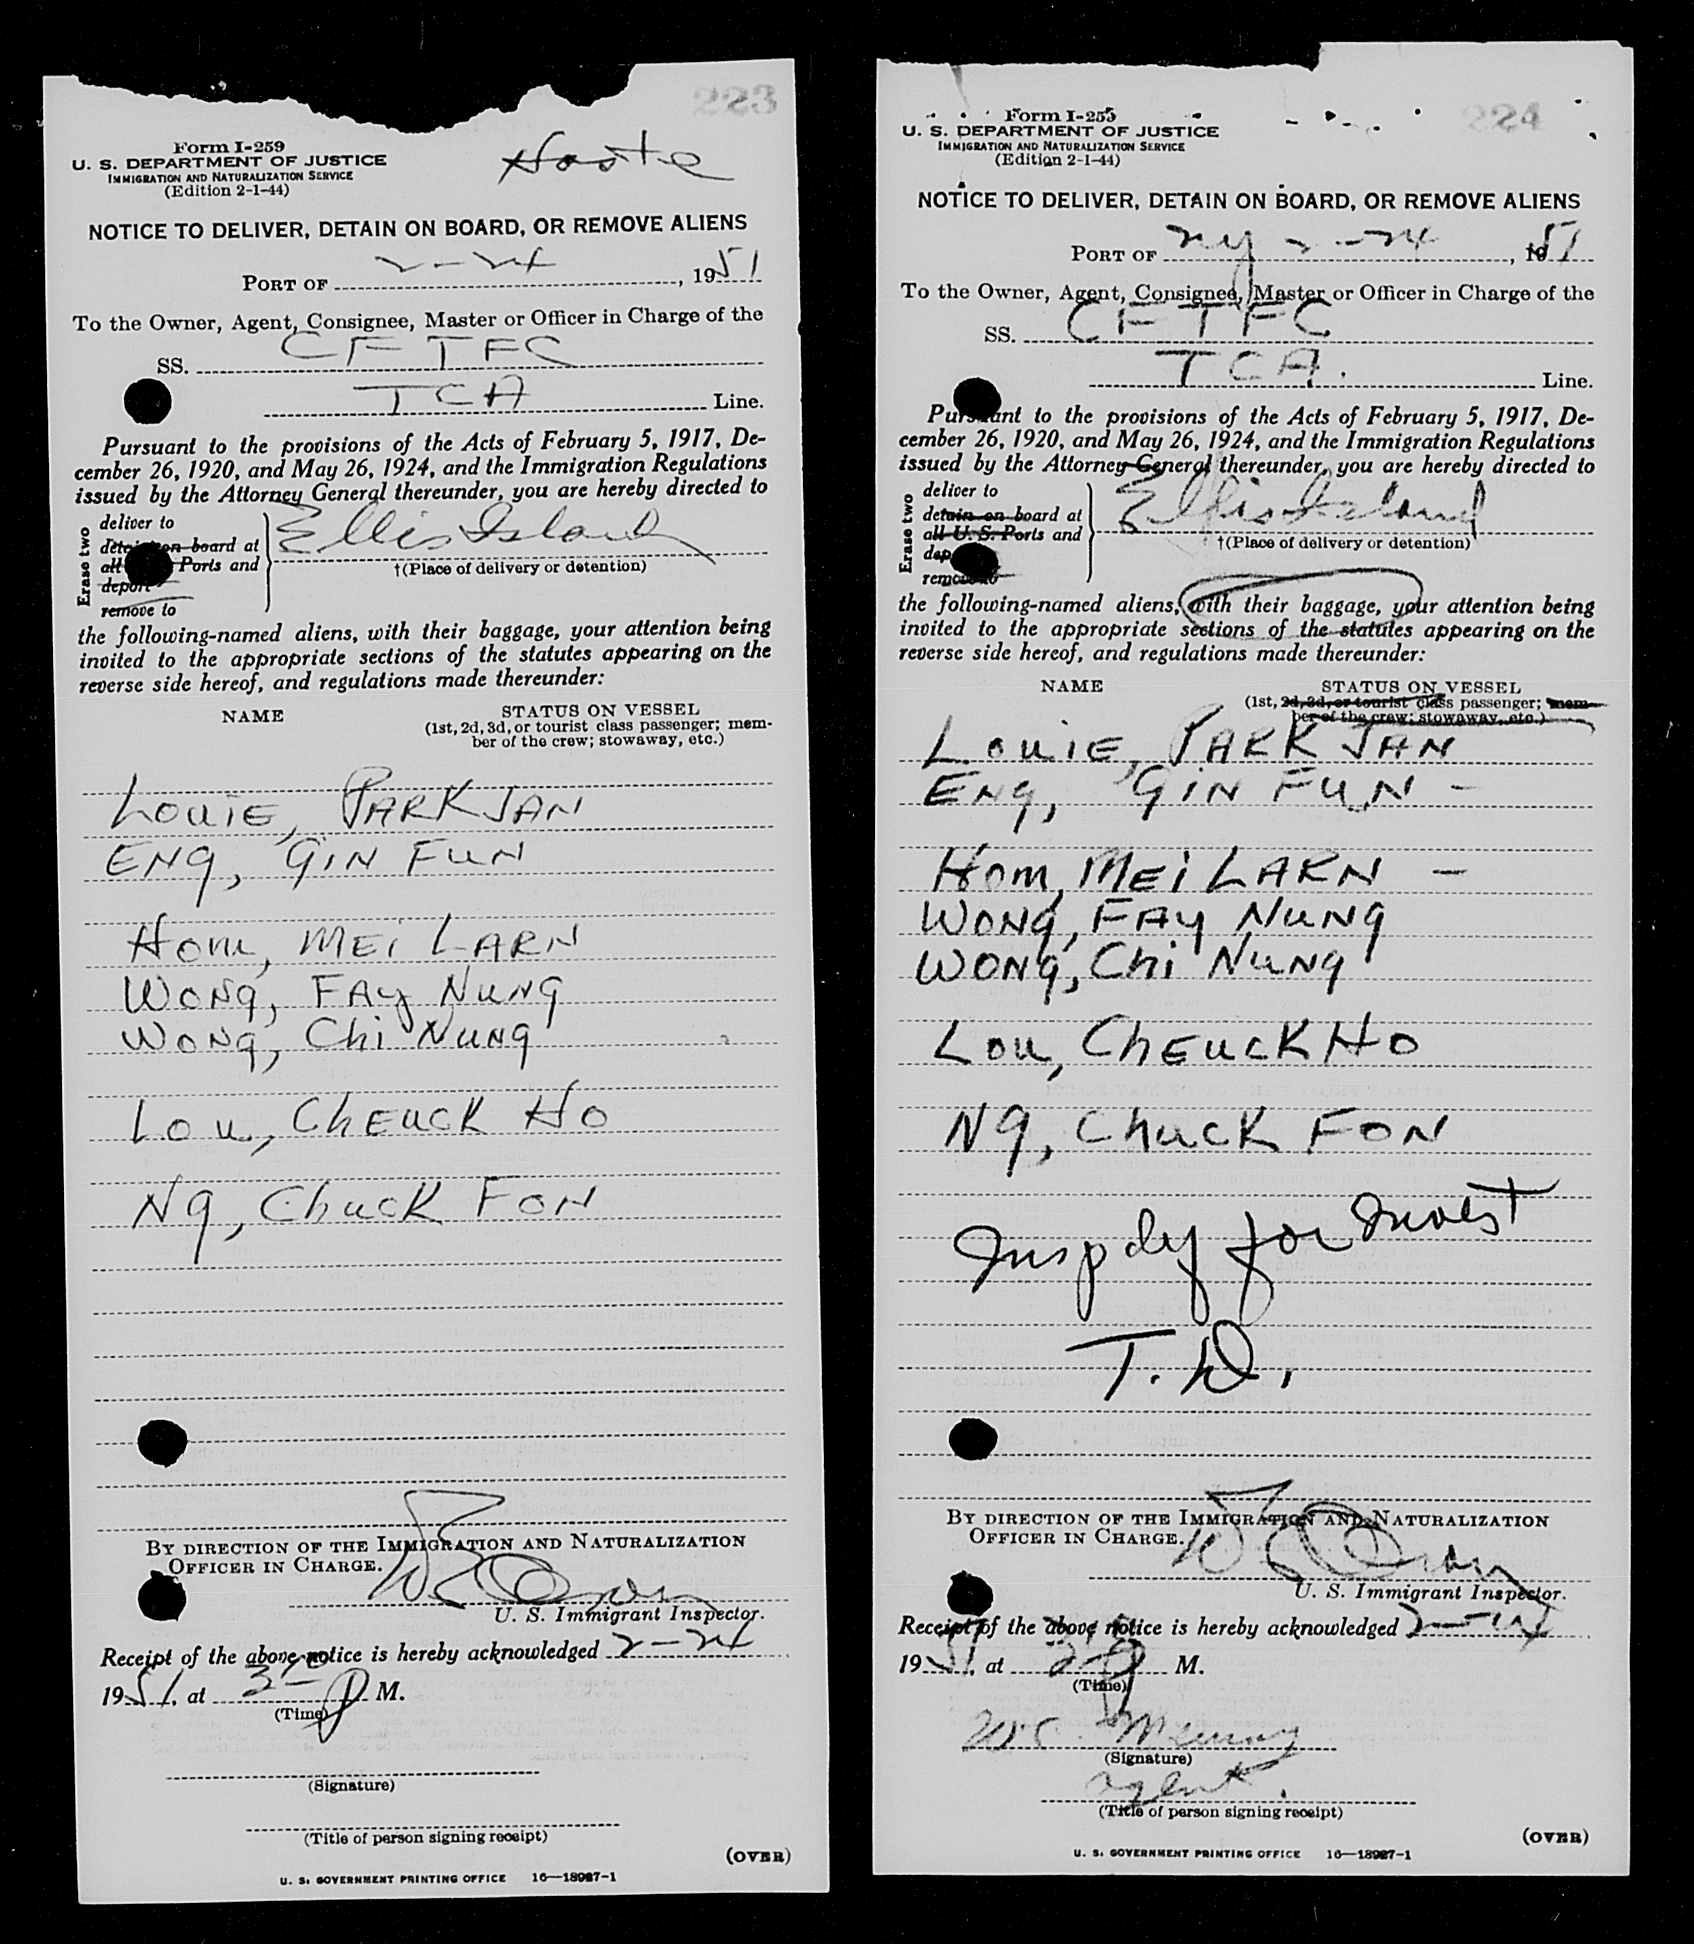 223
Form I-259
U. S. DEPARTMENT OF JUSTICE
IMMIGRATION AND NATURALIZATION SERVICE
(Edition 2-1-44)
NOTICE TO DELIVER, DETAIN ON BOARD, OR REMOVE ALIENS
PORT OF 2-24, 1951
To the Owner, Agent, Consignee, Master or Officer in Charge of the
SS. CFTFC
TCA Line.
Pursuant to the provisions of the Acts of February 5, 1917, De-
cember 26, 1920, and May 26, 1924, and the Immigration Regulations
issued by the Attorney General thereunder, you are hereby directed to
Erase two
deliver to
detain on board at
all Ports and
deport
remove to
Ellis Island
†(Place of delivery or detention)
the following-named aliens, with their baggage, your attention being
invited to the appropriate sections of the statutes appearing on the
reverse side hereof, and regulations made thereunder:
NAME
STATUS ON VESSEL
(1st, 2d, 3d, or tourist class passenger; mem-
ber of the crew; stowaway, etc.)
LOUIE, PARK JAN
ENG, GIN FUN
HOM, MEI LARN
WONG, FAY NUNG
WONG, Chi NUNG
LOU, ChEUCK HO
NG, ChucK FON
BY DIRECTION OF THE IMMIGRATION AND NATURALIZATION
OFFICER IN CHARGE.
U. S. Immigrant Inspector.
Receipt of the above notice is hereby acknowledged 2-24
1951, at M.
(Time)
(Signature)
(Title of person signing receipt)
(OVER)
U. S. GOVERNMENT PRINTING OFFICE 16—18987-1
224
Form I-259
U. S. DEPARTMENT OF JUSTICE
IMMIGRATION AND NATURALIZATION SERVICE
(Edition 2-1-44)
NOTICE TO DELIVER, DETAIN ON BOARD, OR REMOVE ALIENS
PORT OF NY 2-24, 1951
To the Owner, Agent, Consignee, Master or Officer in Charge of the
SS. CFTFC
TCA. Line.
Pursuant to the provisions of the Acts of February 5, 1917, De-
cember 26, 1920, and May 26, 1924, and the Immigration Regulations
issued by the Attorney General thereunder, you are hereby directed to
Erase two
deliver to
detain on board at
all U. S. Ports and
dep
remove to
Ellis Island
†(Place of delivery or detention)
the following-named aliens, with their baggage, your attention being
invited to the appropriate sections of the statutes appearing on the
reverse side hereof, and regulations made thereunder:
NAME
STATUS ON VESSEL
(1st, 2d, 3d, or tourist class passenger; mem-
ber of the crew; stowaway, etc.)
LOUIE, PARK JAN
ENG, GIN FUN -
HOM, MEI LARN -
WONG, FAY NUNG
WONG, Chi NUNG
LOU, ChEUCK HO
NG, ChucK FON
Insp dly for Invest
T. D.
BY DIRECTION OF THE IMMIGRATION AND NATURALIZATION
OFFICER IN CHARGE.
U. S. Immigrant Inspector.
Receipt of the above notice is hereby acknowledged 2-24
1951, at M.
(Time)
(Signature)
agent.
(Title of person signing receipt)
(OVER)
U. S. GOVERNMENT PRINTING OFFICE 16—18987-1